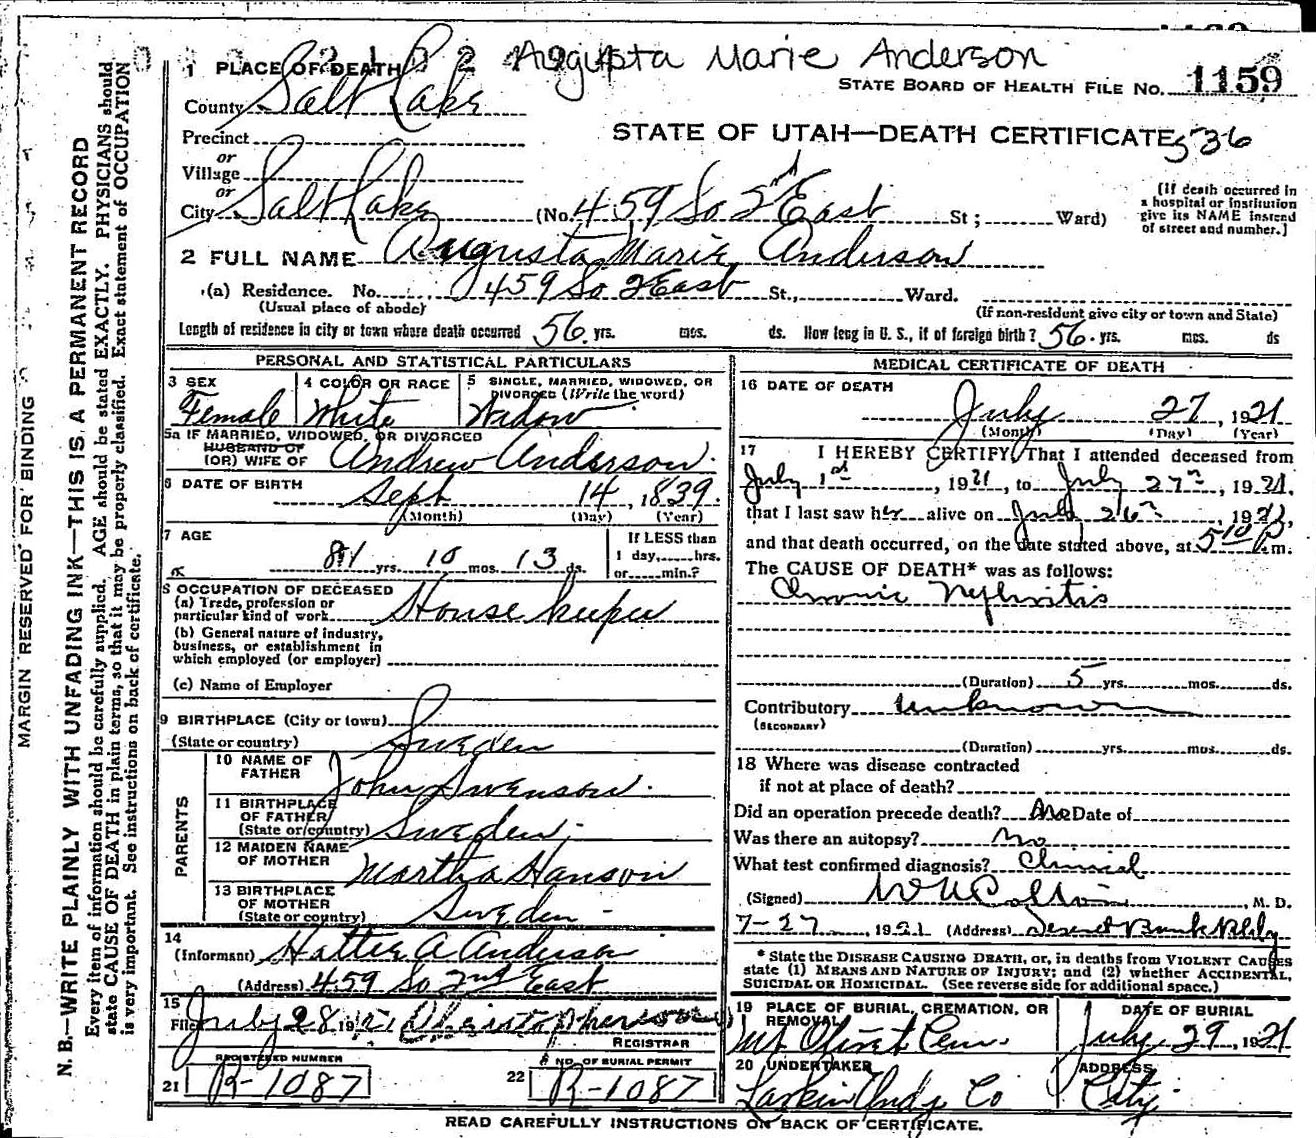 Augusta Marie Anderson
STATE BOARD OF HEALTH FILE NO. 1159
1 PLACE OF DEATH
County Salt Lake
STATE OF UTAH—DEATH CERTIFICATE 536
Precinct
or
Village
or
City Salt Lake (No. 459 So 2d East St; Ward)
(If death occurred in
a hospital or institution
give its NAME instead
of street and number.]
2 FULL NAME Augusta Marie Anderson
(a) Residence. No. 459 So 2 East St., Ward.
(Usual place of abode) (If non-resident give city or town and State)
Length of residence in city or town where death occurred 56 yrs. mos. ds. How long in U. S., if of foreign birth? 56 yrs. mos. ds
PERSONAL AND STATISTICAL PARTICULARS
3 SEX
Female
4 COLOR OR RACE
White
5 SINGLE, MARRIED, WIDOWED, OR
DIVORCED (Write the word)
Widow
5a IF MARRIED, WIDOWED, OR DIVORCED
HUSBAND OF
(OR) WIFE OF Andrew Anderson.
6 DATE OF BIRTH
Sept 14, 1839.
(Month) (Day) (Year)
7 AGE
81 yrs. 10 mos. 13 ds.
If LESS than
1 day,.....hrs.
or.....min.?
8 OCCUPATION OF DECEASED
(a) Trade, profession or
particular kind of work House keeper
(b) General nature of industry,
business, or establishment in
which employed (or employer)
(c) Name of Employer
9 BIRTHPLACE (City or town)
(State or country) Sweden
PARENTS
10 NAME OF
FATHER John Swenson.
11 BIRTHPLACE
OF FATHER
(State or country) Sweden.
12 MAIDEN NAME
OF MOTHER Martha Hanson
13 BIRTHPLACE
OF MOTHER
(State or country) Sweden
14
(Informant) Hattie A Anderson
(Address) 459 So 2nd East
15
Filed July 28 1921
REGISTRAR
REGISTERED NUMBER
21 R-1087
NO. OF BURIAL PERMIT
22 R-1087
MEDICAL CERTIFICATE OF DEATH
16 DATE OF DEATH
July 27, 1921
(Month) (Day) (Year)
17 I HEREBY CERTIFY, That I attended deceased from
July 1st, 1921, to July 27th, 1921,
that I last saw her alive on July 26th 1921,
and that death occurred, on the date stated above, at 5 10 P.m.
The CAUSE OF DEATH* was as follows:
Chronic Nephritis
(Duration) 5 yrs. mos. ds.
Contributory unknown
(SECONDARY)
(Duration) yrs. mos. ds.
18 Where was disease contracted
if not at place of death?
Did an operation precede death? No Date of
Was there an autopsy? no
What test confirmed diagnosis? Clinical
(Signed) , M. D.
7-27, 1921 (Address) Deseret Bank Bldg
* State the DISEASE CAUSING DEATH, or, in deaths from VIOLENT CAUSES
state (1) MEANS AND NATURE OF INJURY; and (2) whether ACCIDENTAL,
SUICIDAL OR HOMICIDAL. (See reverse side for additional space.)
19 PLACE OF BURIAL, CREMATION, OR
REMOVAL
Mt Olivet Cem.
DATE OF BURIAL
July 29, 1921
20 UNDERTAKER
Larkin Undg Co
ADDRESS
City
READ CAREFULLY INSTRUCTIONS ON BACK OF CERTIFICATE.
MARGIN RESERVED FOR BINDING
N. B.—WRITE PLAINLY WITH UNFADING INK—THIS IS A PERMANENT RECORD
Every item of information should be carefully supplied. AGE should be stated EXACTLY. PHYSICIANS should
state CAUSE OF DEATH in plain terms, so that it may be properly classified. Exact statement of OCCUPATION
is very important. See instructions on back of certificate.